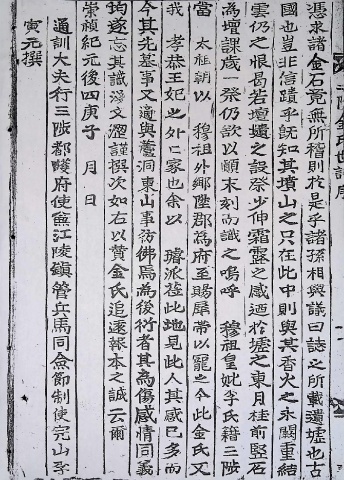 憑求諸金石竟無所稽則於是乎諸孫相與議曰誌之所載遺墟也古
國也豈非信蹟乎旣知其墳山之只在此中則與其香火之永闕重結
雲仍之恨曷若壇墠之設祭少伸霜露之感迺於墟之東月桂前竪石
爲壇課歲一祭仍欲以顚末刻而識之嗚呼 穆祖皇妣李氏籍三陟
當 太祖朝以 穆祖外鄕陞郡爲府至賜犀帶以寵之今此金氏又
我 孝恭王妃之外家也余以 璿派莅此地見此人其感已多而
今其先墓事又適與蘆洞東山事彷佛焉爲後衍者其爲傷感情同義
均遂忘其識淺文澀謹撰次如右以贊金氏追遠報本之誠云爾
崇禎紀元後四庚子 月 日
通訓大夫行三陟都護府使兼江陵鎭管兵馬同僉節制使完山李
寅元撰
金氏世譜序